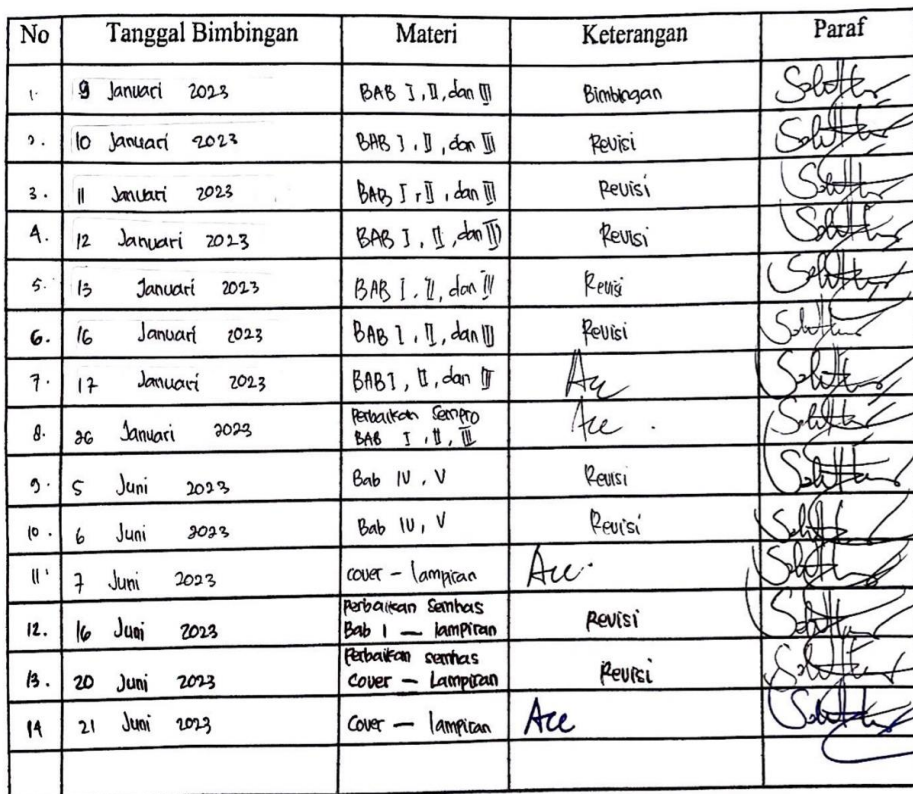 No Tanggal Bimbingan Materi Keterangan Paraf
1. 9 Januari 2023 BAB I, II, dan III Bimbingan
2. 10 Januari 2023 BAB I, II, dan III Revisi
3. 11 Januari 2023 BAB I, II, dan III Revisi
4. 12 Januari 2023 BAB I, II, dan III Revisi
5. 13 Januari 2023 BAB I, II, dan III Revisi
6. 16 Januari 2023 BAB I, II, dan III Revisi
7. 17 Januari 2023 BAB I, II, dan III Acc
8. 26 Januari 2023 Perbaikan Sempro
BAB I, II, III Acc.
9. 5 Juni 2023 Bab IV, V Revisi
10. 6 Juni 2023 Bab IV, V Revisi
11. 7 Juni 2023 cover - lampiran Acc.
12. 16 Juni 2023 Perbaikan Semhas
Bab 1 - lampiran Revisi
13. 20 Juni 2023 Perbaikan semhas
Cover - Lampiran Revisi
14 21 Juni 2023 Cover - lampiran Acc